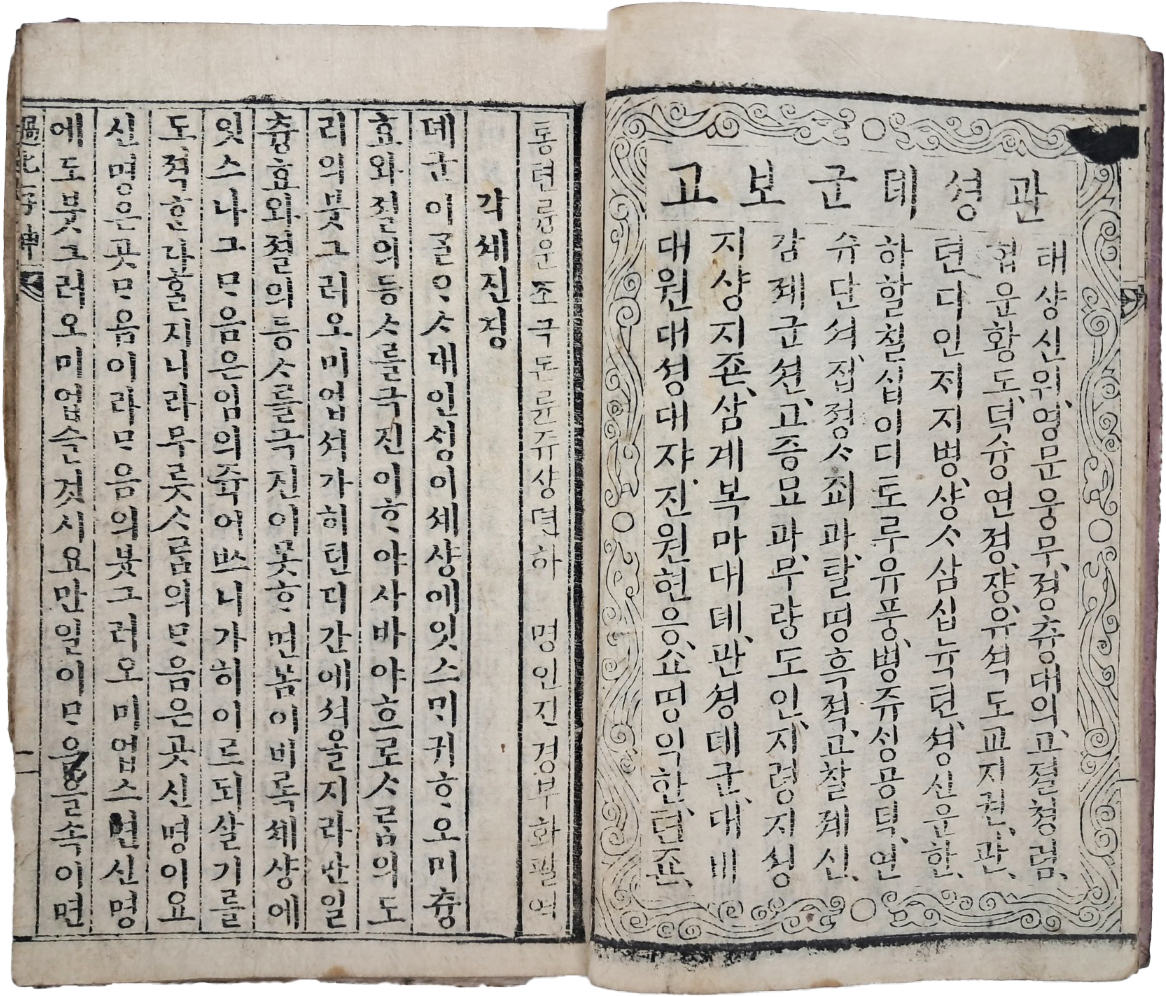 관셩뎨군보고
태샹신위,영문웅무,졍츙대의,고졀쳥렴,
협운황도,덕슝연졍,쟝유셕도교지권,관
텬디인지지병,샹ᄉᆞ삼십뉵텬,셩신운한,
하할칠십이디토루유풍,병쥬ᄉᆡᆼ공덕,연
슈단셔,집졍ᄉᆞ죄과,탈명흑적,고찰졔신,
감졔군션,고증묘과,무량도인,지령지셩
지샹지죤,삼계복마대뎨,관셩뎨군,대비
대원대셩대쟈,진원현응,쇼명익한,텬죤,
통텬륭운조극돈륜쥬샹뎐하 명인진경부화필역
각세진경
뎨군이ᄀᆞᆯᄋᆞᄉᆞ대인ᄉᆡᆼ이세샹에잇스ᄆᆡ귀ᄒᆞ오미츙
효와졀의등ᄉᆞ를극진이ᄒᆞ야사바야흐로ᄉᆞᄅᆞᆷ의도
리의붓그러오미업셔가히텬디간에셩ᄒᆞᆯ지라만일
츙효와졀의등ᄉᆞ를극진이못ᄒᆞ면몸이비록세샹에
잇스나그ᄆᆞ음은임의쥭어쓰니가히이르되살기를
도적ᄒᆞᆫ다ᄒᆞᆯ지니라무릇ᄉᆞᄅᆞᆷ의ᄆᆞ음은곳신명이요
신명은곳ᄆᆞ음이라ᄆᆞ음의붓그러오미업스면신명
에도붓그러오미업슬것시요만일이ᄆᆞ음을속이면
過化存神